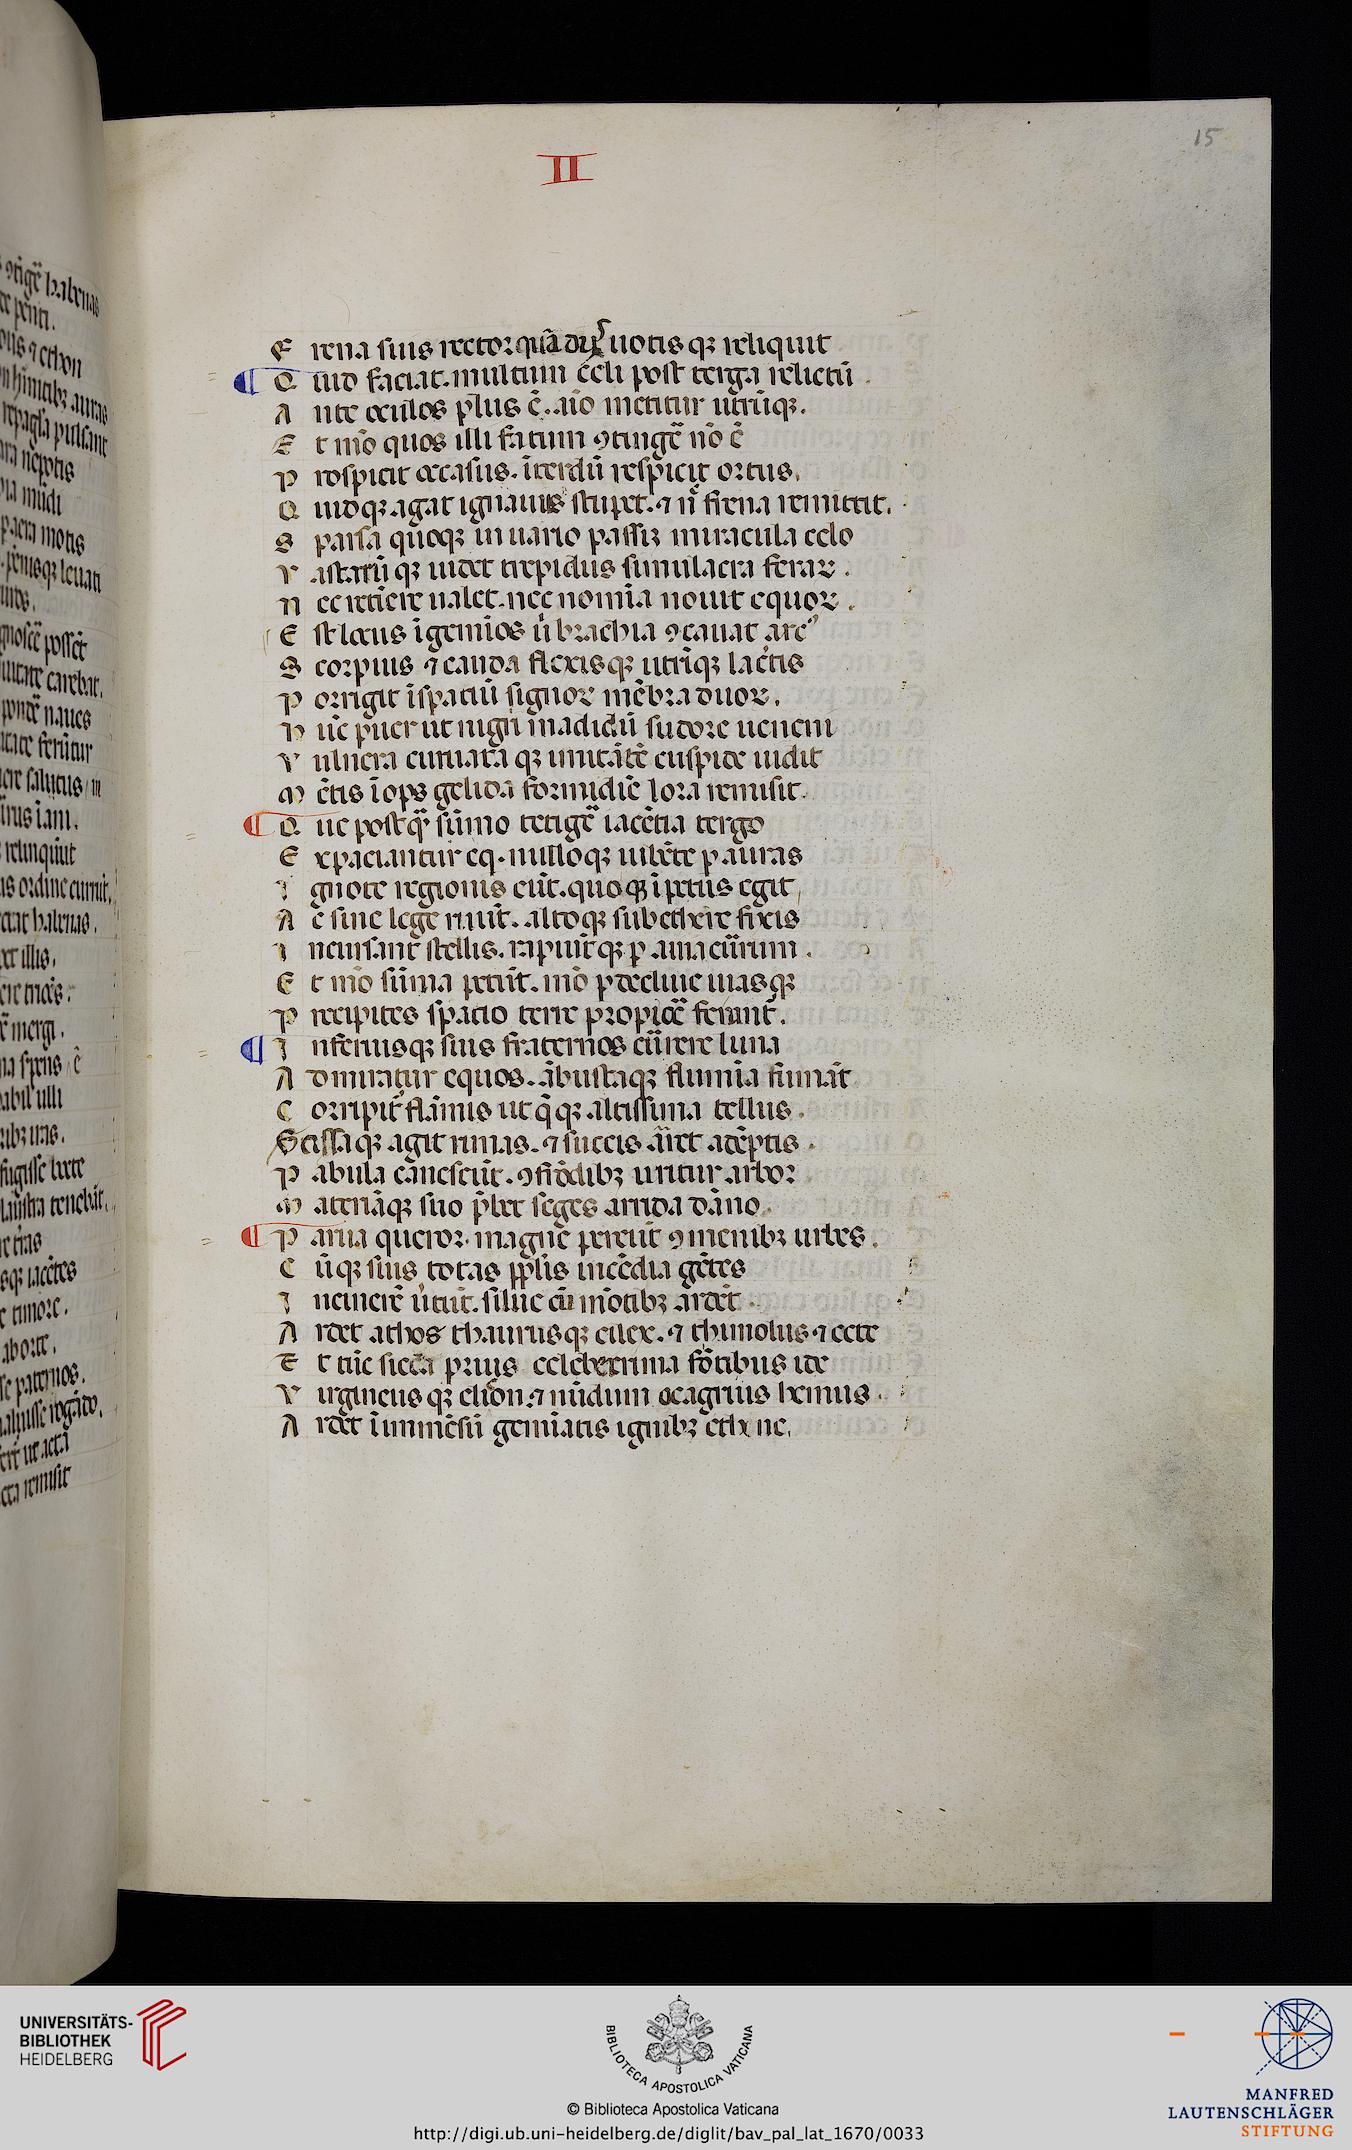 15
II
F rena suis rector quā dijs uotis qꝫ reliquit
Q uid faciat. multum cēli post terga relictū.
A nte oculos plus ē. aīo metitur utrūqꝫ.
E t mō quos illi fatum ꝯtingē nō ē
P rospicit occasus. īterdū respicit ortus.
Q uidqꝫ agat ignauus stupet. ⁊ ń frena remittit.
S parsa quoqꝫ in uario passiꝫ miracula celo
V astarū qꝫ uidet trepidus simulacra feraꝝ.
N ec retiēre ualet. nec nomīa nouit equoꝝ.
E st locus ī gemīos ů brachia ꝯcauat arc᾽
S corpius ⁊ cauda flexisqꝫ utrīqꝫ lac̄tis
P orrigit ī spatiū signoꝝ mēbra duoꝝ.
H ūc puer ut nigrī madidū sudore ueneni
V ulnera curuata qꝫ mitātē cuspide uidit
M ētis īops gelida formidīe lora remisit.
Q ue postqᷓ sūmo tetigē iacētia tergo
E xpaciantur eq. nulloqꝫ inhibēte ꝑ auras
I gnote regionis eūt. quoqꝫ īpetus egit
A c sine lege ruūt. altoqꝫ sub ethere fixis
I ncursant stellis. rapiūtqꝫ ꝑ auia cūrrum.
E t mō sūma petūt. mō ꝑ decliue uiasqꝫ
P recipites spatio terre propiōē ferunt̄.
I nferiusqꝫ suis fraternos cūrrere luna
A dmiratur equos. ābustaqꝫ flumīa fumāt
C orripit̄ flāmis ut q̄qꝫ altissima tellus.
Scissaqꝫ agit rimas. ⁊ succis āret adēptis.
P abula cānescūt. ꝯ frōdibꝫ uritur arbor.
M ateriāqꝫ suo p̄bet seges arrida dāno.
P arua queror. magne pereūt ꝯ menibꝫ urbes.
C ūqꝫ suis totas ꝑplis incēdia gētes
I n cinerē ůtūt. silue cū mōtibꝫ ardēt.
A rdet athos thaurusqꝫ cilex. ⁊ thimolus ⁊ oete
E t tūc sicca prius celeberrima fōtibus ide
V irgineus qꝫ elion. ⁊ nūdum oeagrius hemus.
A rdet īmmēsū gemīatis ignibꝫ ethne.
UNIVERSITÄTS-
BIBLIOTHEK
HEIDELBERG
BIBLIOTECA APOSTOLICA VATICANA
© Biblioteca Apostolica Vaticana
http://digi.ub.uni-heidelberg.de/diglit/bav_pal_lat_1670/0033
MANFRED
LAUTENSCHLÄGER
STIFTUNG